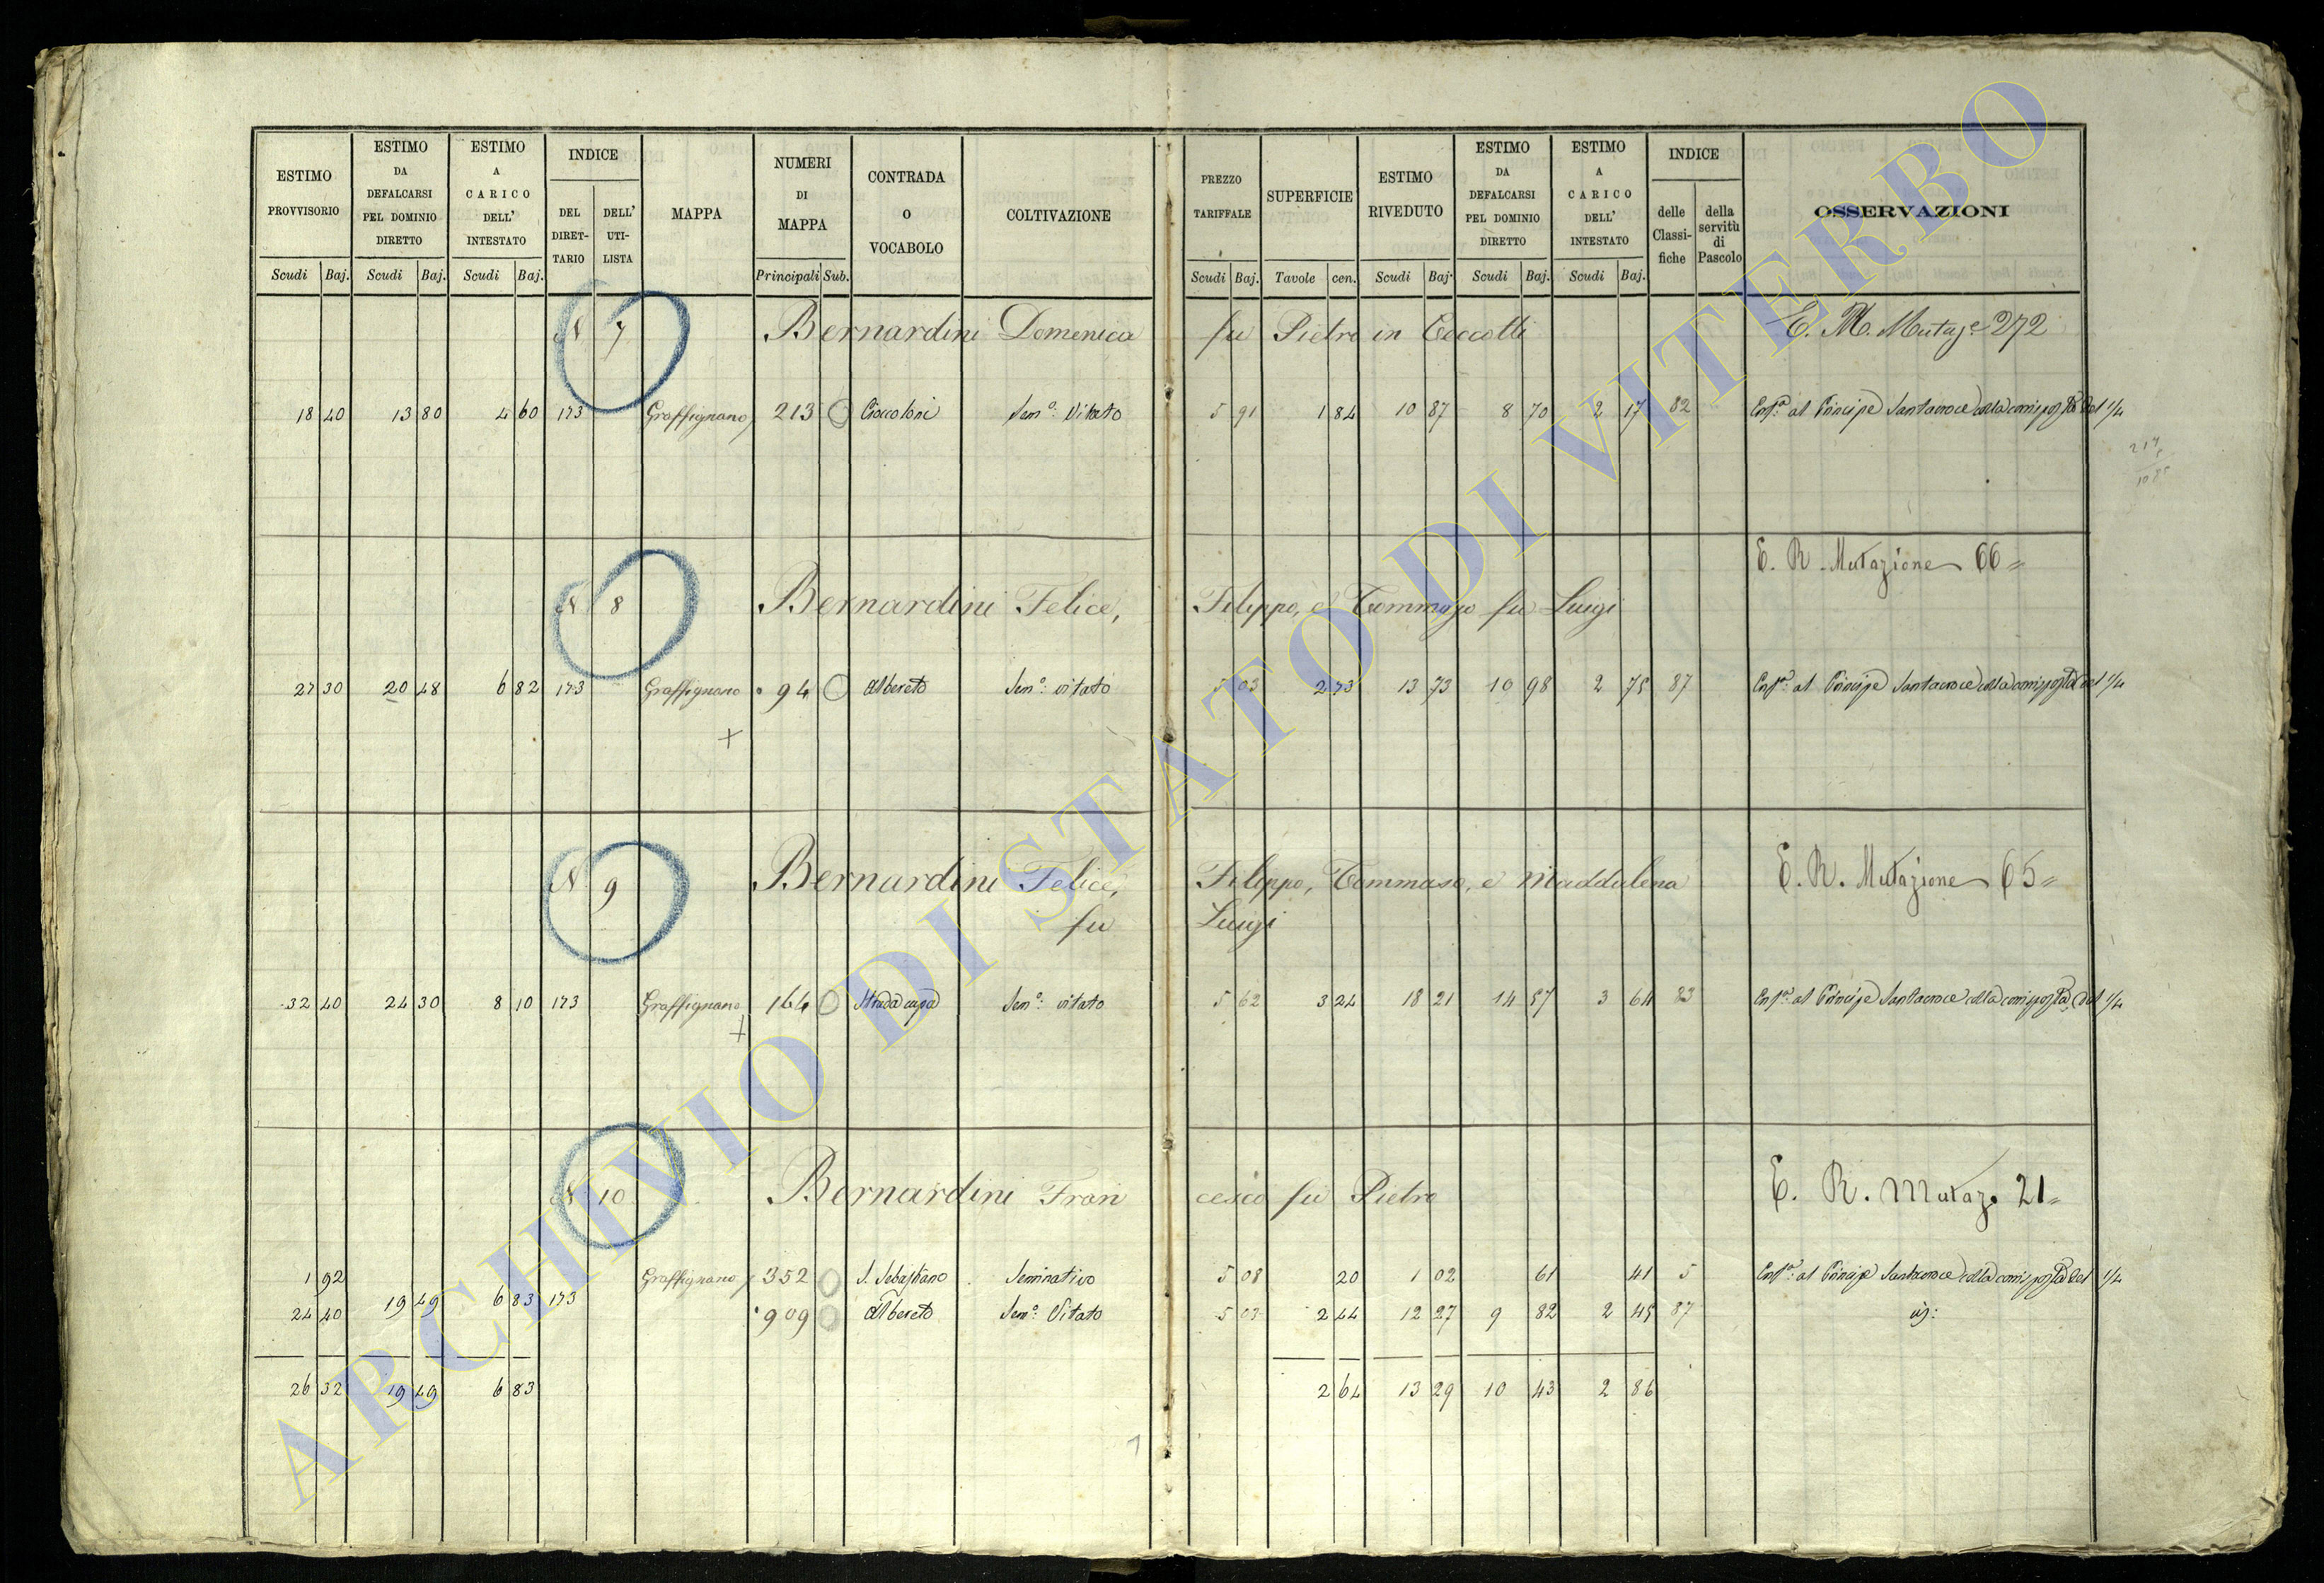 ESTIMO PROVVISORIO
ESTIMO DA DEFALCARSI PEL DOMINIO DIRETTO
ESTIMO A CARICO DELL' INTESTATO
INDICE
DEL DIRET-TARIO
DELL' UTI-LISTA
MAPPA
NUMERI DI MAPPA
CONTRADA O VOCABOLO
COLTIVAZIONE
PREZZO TARIFFALE
SUPERFICIE
ESTIMO RIVEDUTO
ESTIMO DA DEFALCARSI PEL DOMINIO DIRETTO
ESTIMO A CARICO DELL' INTESTATO
INDICE
delle Classi-fiche
della servitù di Pascolo
OSSERVAZIONI
Scudi Baj. Scudi Baj. Scudi Baj. Principali Sub. Scudi Baj. Tavole cen. Scudi Baj. Scudi Baj. Scudi Baj.
N 7 Bernardini Domenica fu Pietro in Ceccotti E. R. Mutaz.e 272
18 40 13 80 4 60 173 Graffignano 213 Cioccoloni Sem.o Vitato 5 91 1 84 10 87 8 70 2 17 82 Enf.a al Principe Santacroce colla corrisposta del 1/4
217
5
10 85
N 8 Bernardini Felice, Filippo, e Tommaso fu Luigi E. R. Mutazione 66=
27 30 20 48 6 82 173 Graffignano 94 Albereto Sem.o vitato 5 03 2 73 13 73 10 98 2 75 87 Enf.a al Principe Santacroce colla corrisposta del 1/4
+
N 9 Bernardini Felice, Filippo, Tommaso, e Maddalena E. R. Mutazione 65=
fu Luigi
32 40 24 30 8 10 173 Graffignano 164 Strada cupa Sem.o vitato 5 62 3 24 18 21 14 57 3 64 83 Enf.a al Principe Santacroce colla corrisposta del 1/4
+
N 10 Bernardini Francesco fu Pietro E. R. Mutaz. 21=
1 92 Graffignano 352 S. Sebastiano Seminativo 5 08 20 1 02 61 41 5 Enf.a al Principe Santacroce colla corrisposta del 1/4
19 49 6 83 173
24 40 909 Albereto Sem.o Vitato 5 03 2 44 12 27 9 82 2 45 87
26 32 19 49 6 83 2 64 13 29 10 43 2 86
ARCHIVIO DI STATO DI VITERBO